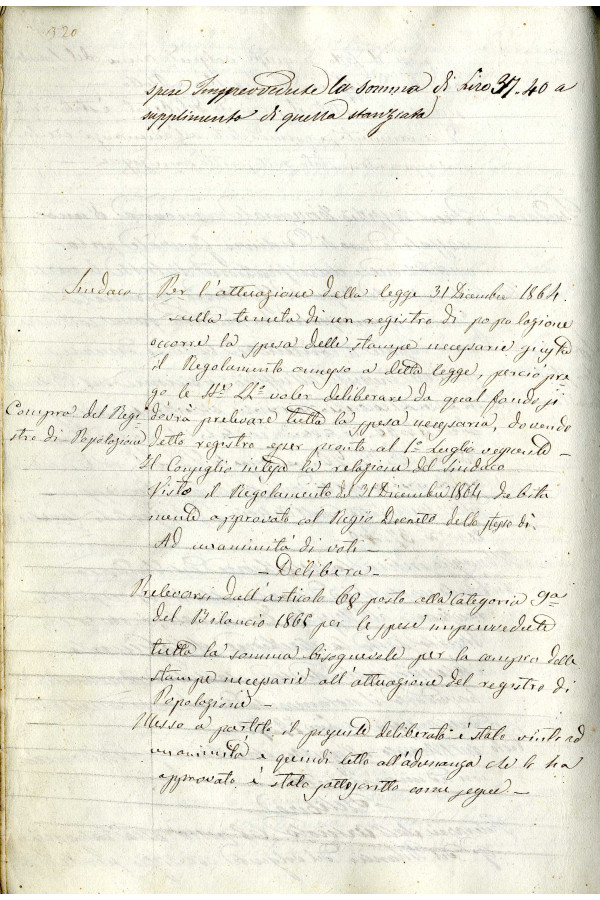 320
spese Imprevvedute la somma di Lire 37.40 a
supplimento di quella stanziata
Sindaco Per l'attuazione della legge 31 Dicembre 1864.
sulla tenuta di un registro di popolazione
occorre la spesa delle stampe necessarie giusta
il Regolamento annesso a detta legge, perciò pre-
go le SS.e LL.e voler deliberare da qual fondo si
dovrà prelevare tutta la spesa necessaria, dovendo
Compra del Regi-
stro di Popolazione
detto registro esser pronto al 1.o Luglio vegnente -
Il Consiglio intesa la relazione del Sindaco
Visto il Regolamento di 31 Dicembre 1864 debita
mente approvato col Regio Decreto dello stesso dì.
Ad unanimità di voti -
- Delibera -
Prelevarsi dall'articolo 68 posto alla Categoria 9a
del Bilancio 1865 per le spese imprevvedute
tutta la somma bisognevole per la compra delle
stampe necessarie all'attuazione del registro di
Popolazione -
Messo a partito il presente deliberato è stato vinto ad
unanimità e quindi letto all'adunanza che lo ha
approvato, è stato sottoscritto come segue. -